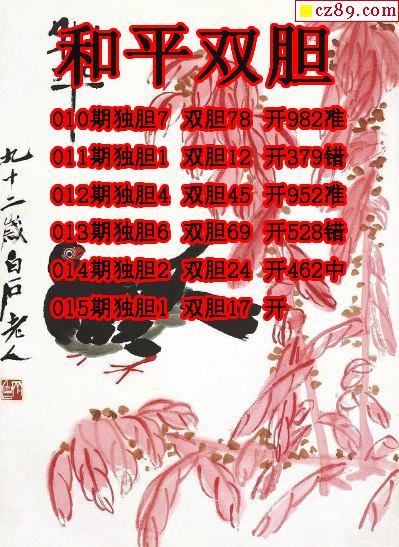 cz89.com
和平双胆
010期独胆7 双胆78 开982准
011期独胆1 双胆12 开379错
012期独胆4 双胆45 开952准
013期独胆6 双胆69 开528错
014期独胆2 双胆24 开462中
015期独胆1 双胆17 开
九十二岁白石老人